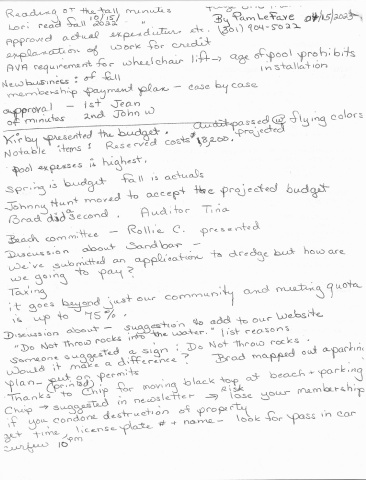 Reading of the fall minutes
10/15/
Lori read fall 2022
By Pam LeFave 04/15/2023
Approved actual expenditures etc. (301) 904-5022
explanation of work for credit
AVA requirement for wheelchair lift → age of pool prohibits
installation
New business: of fall
membership payment plan - case by case
approval - 1st Jean
of minutes 2nd John W
Kirby presented the budget. Audit passed w/ flying colors
Notable items: Reserved costs $18,200. projected
Pool expenses is highest.
Spring is budget fall is actuals
Johnny Hunt moved to accept the projected budget
Brad did a second. Auditor Tina
Beach committee - Rollie C. presented
Discussion about Sandbar -
We've submitted an application to dredge but how are
we going to pay?
Taxing
it goes beyond just our community and meeting quota
is up to 75%.
Discussion about - suggestion to add to our website
"Do Not throw rocks into the water." list reasons
Someone suggested a sign: Do Not throw rocks.
Would it make a difference? Brad mapped out a parking
plan - put on permits
(printed)
Thanks to Chip for moving black top at beach + parking
Chip → suggested in newsletter → risk lose your membership
if you condone destruction of property
get time, license plate # + name - look for pass in car
curfew 10 pm